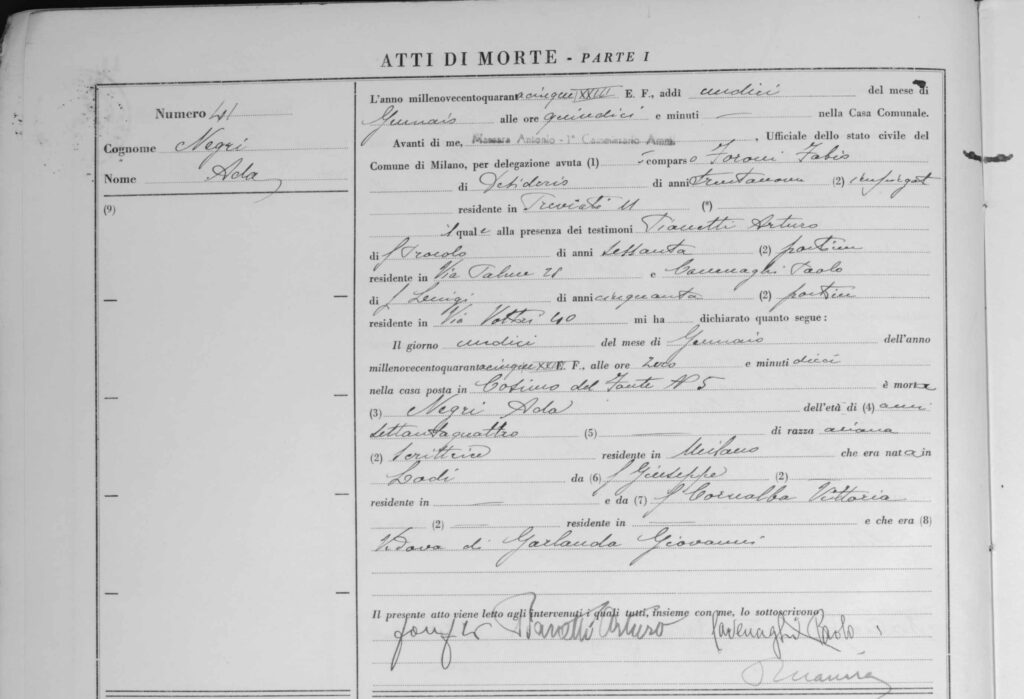 ATTI DI MORTE - PARTE I
Numero 41
Cognome Negri
Nome Ada
(9)
L'anno millenovecentoquarantacinque XXIII E. F., addì undici del mese di
Gennaio alle ore quindici e minuti — nella Casa Comunale.
Avanti di me, Massara Antonio - 1° Commissario Amm. , Ufficiale dello stato civile del
Comune di Milano, per delegazione avuta (1) è comparso Foroni Fabio
di Desiderio di anni trentanove (2) impiegat
residente in Treviati 11 (*)
il quale alla presenza dei testimoni Arturo
di f di anni sessanta (2) portiere
residente in Via 28 e Cavenaghi Paolo
di f Luigi di anni cinquanta (2) portiere
residente in Via 40 mi ha dichiarato quanto segue :
Il giorno undici del mese di Gennaio dell'anno
millenovecentoquarantacinque XXIII E. F., alle ore zero e minuti dieci
nella casa posta in Cosimo del Fante N 5 è morta
(3) Negri Ada dell'età di (4) anni
settantaquattro (5) — di razza ariana
(2) scrittrice residente in Milano che era nata in
Lodi da (6) f Giuseppe (2) —
residente in — e da (7) f Cornalba Vittoria
(2) — residente in — e che era (8)
vedova di Garlanda Giovanni
Il presente atto viene letto agli intervenuti i quali tutti, insieme con me, lo sottoscrivono
Arturo Cavenaghi Paolo